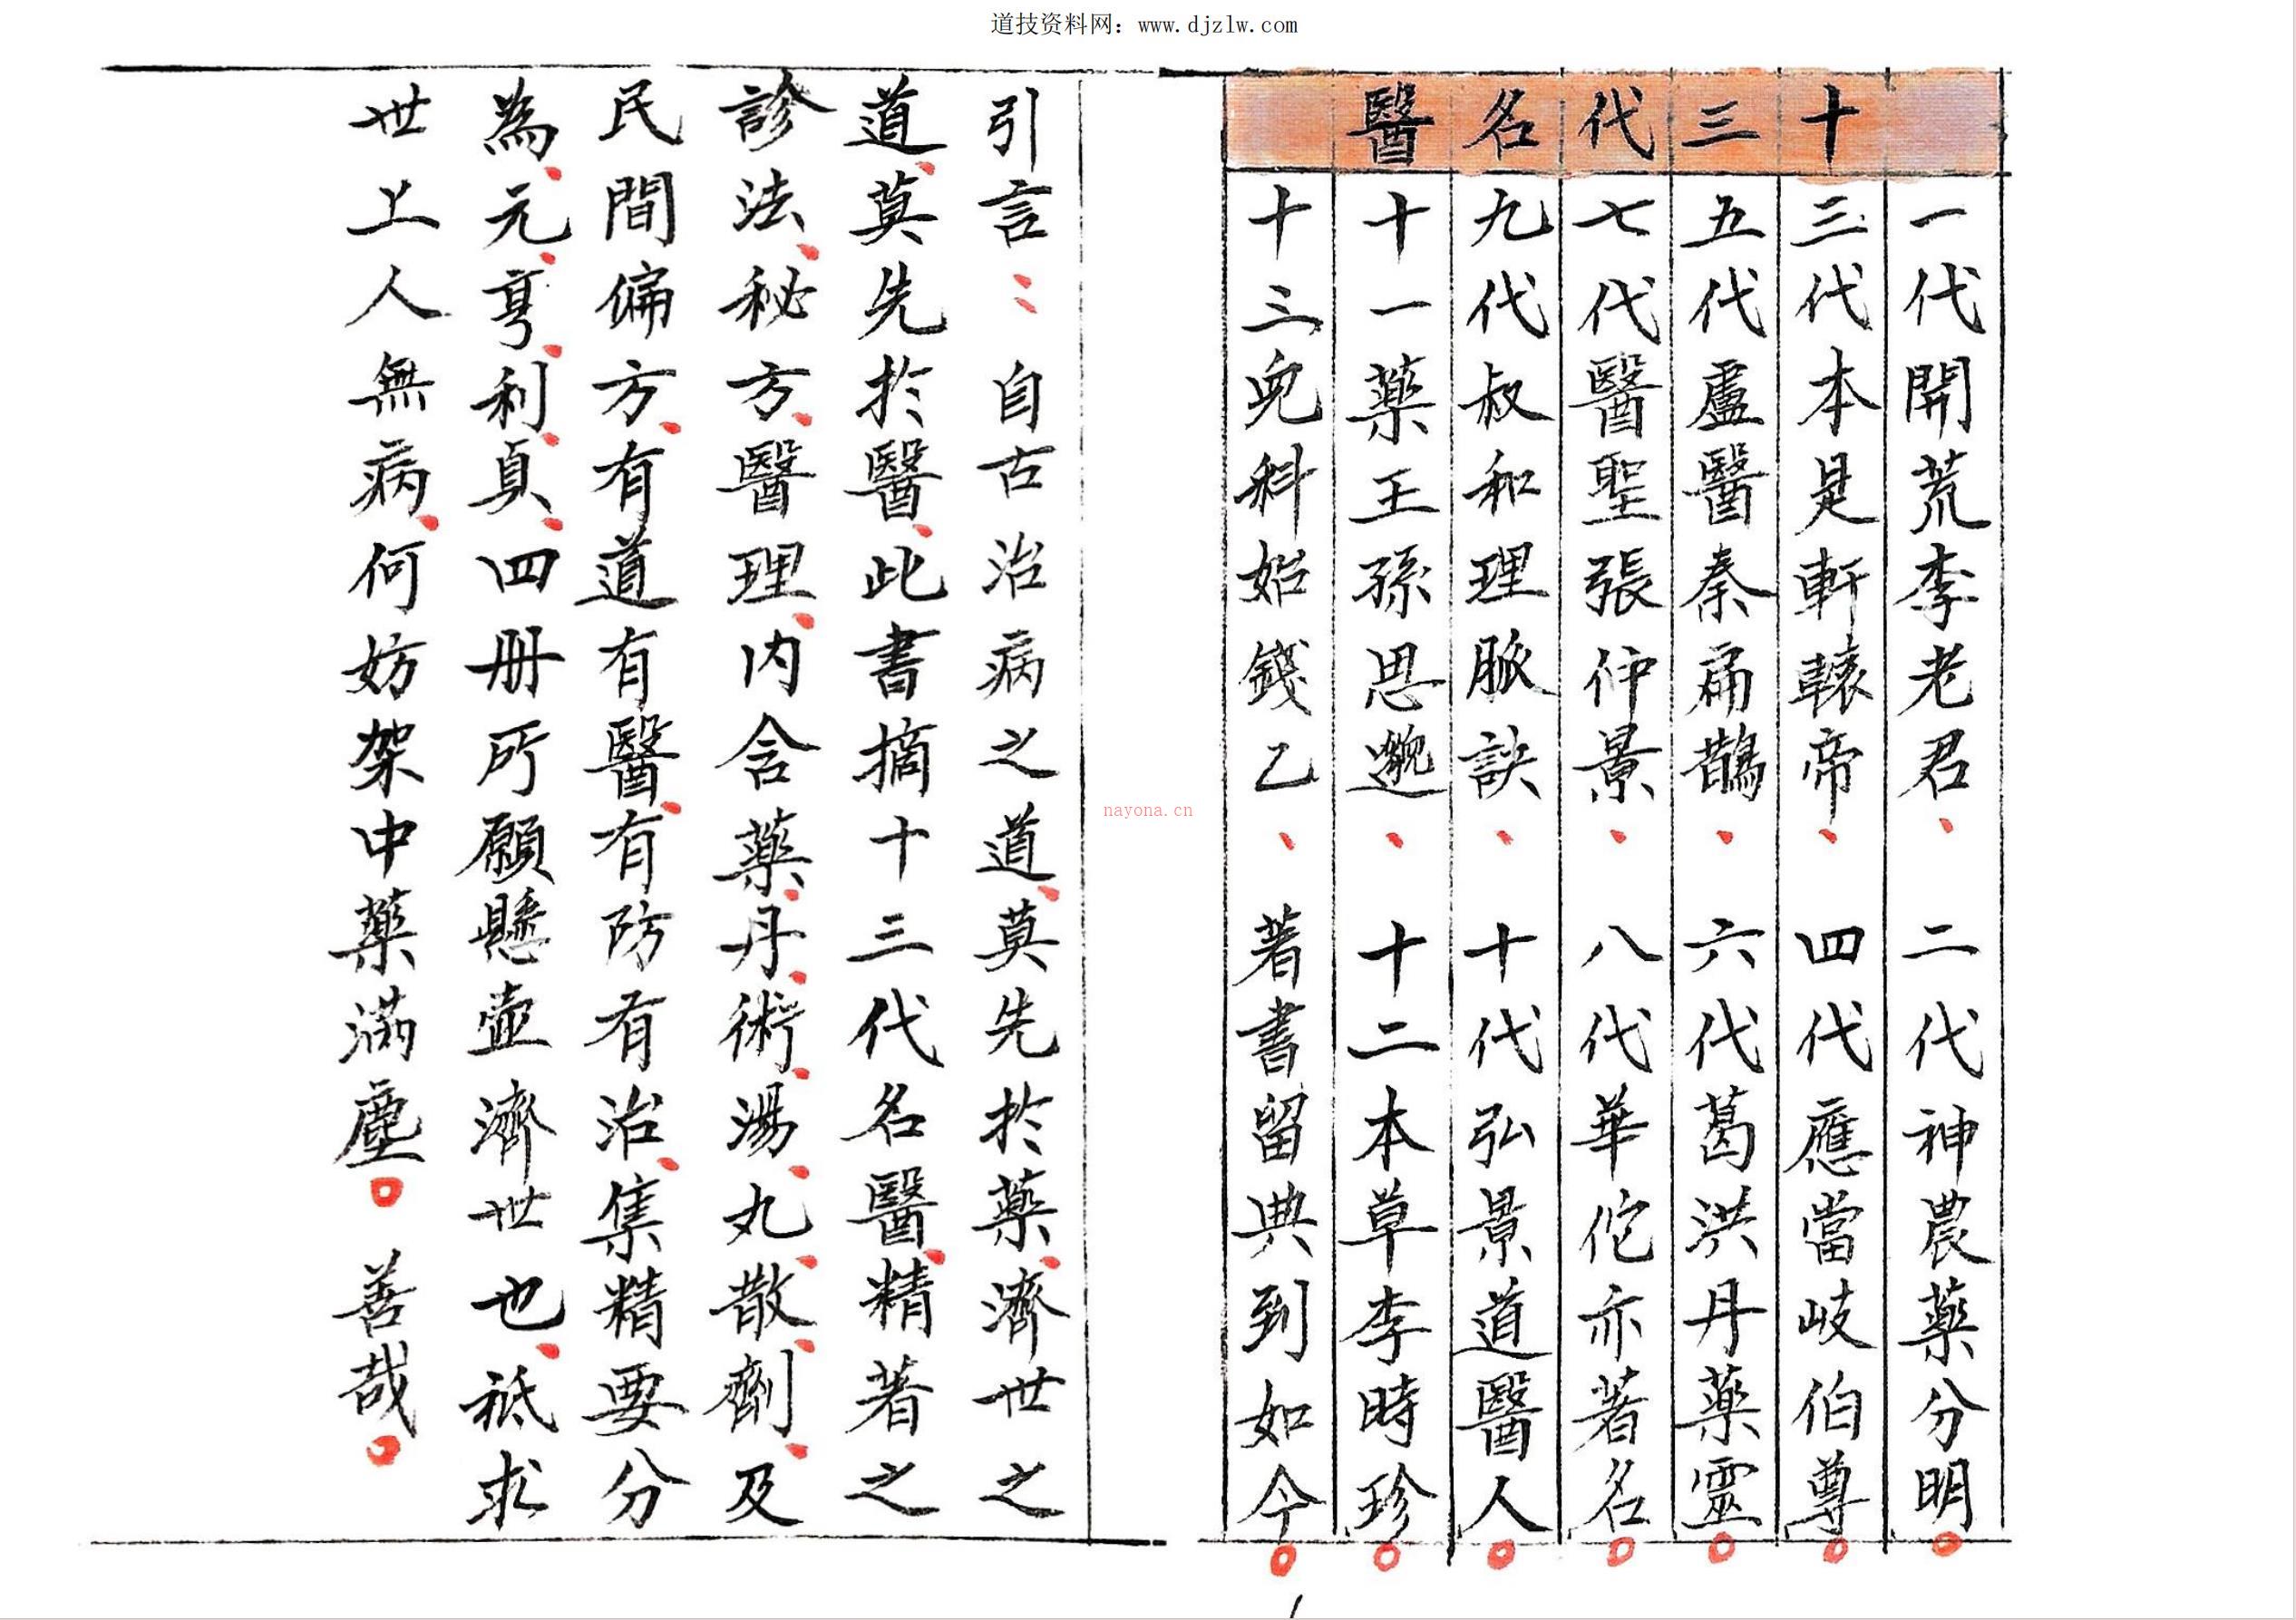 道技资料网：www.djzlw.com
十三代名醫
一代開荒李老君、二代神農藥分明。
三代本是軒轅帝、四代應當岐伯尊。
五代盧醫秦扁鵲、六代葛洪丹藥靈。
七代醫聖張仲景、八代華佗亦著名。
九代叔和理脈訣、十代弘景道醫人。
十一藥王孫思邈、十二本草李時珍。
十三兒科始錢乙、著書留典到如今。
引言：自古治病之道、莫先於藥、濟世之
道、莫先於醫、此書摘十三代名醫、精著之
診法、秘方、醫理、內含藥、丹、術、湯、丸、散、劑、及
民間偏方、有道有醫、有防有治、集精要分
為、元、亨、利、貞、四册所願懸壺濟世也、祇求
世上人無病、何妨架中藥滿塵。善哉。
nayona.cn